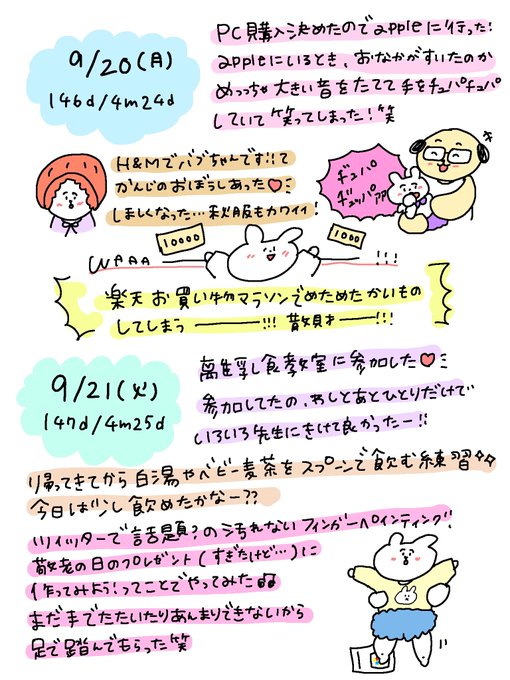 9/20(月)
146d/4m24d
PC購入決めたのでappleに行った!
appleにいるとき、おなかがすいたのか
めっっちゃ大きい音をたてて手をチュパチュパ
していて笑ってしまった!笑
H&Mでバブちゃんです!!て
かんじのおぼうしあった♥
ほしくなった…秋服もカワイイ!
ヂュパ
ヂュッパ
10000
1000
WAAA
!!!
楽天お買い物マラソンでめためたかいもの
してしまう――!!! 散財ー!!!
9/21(火)
147d/4m25d
離乳食教室に参加した♥
参加してたの、わしとあとひとりだけで
いろいろ先生にきけて良かったー!!
帰ってきてから白湯やベビー麦茶をスプーンで飲む練習
今日は少し飲めたかなー??
ツイッターで話題?の汚れないフィンガーペインティング!!
敬老の日のプレゼント(すぎたけど…)に
作ってみよう!ってことでやってみた
まだ手でたたいたりあんまりできないから
足で踏んでもらった笑